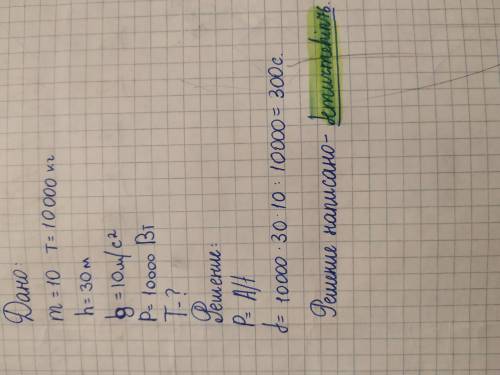 Дано:
m = 10 т = 10000 кг
h = 30 м
g = 10 м/с²
P = 10000 Вт
T - ?
Решение:
P = A/t
t = 10000 · 30 · 10 : 10000 = 300 с.
Решение написано -